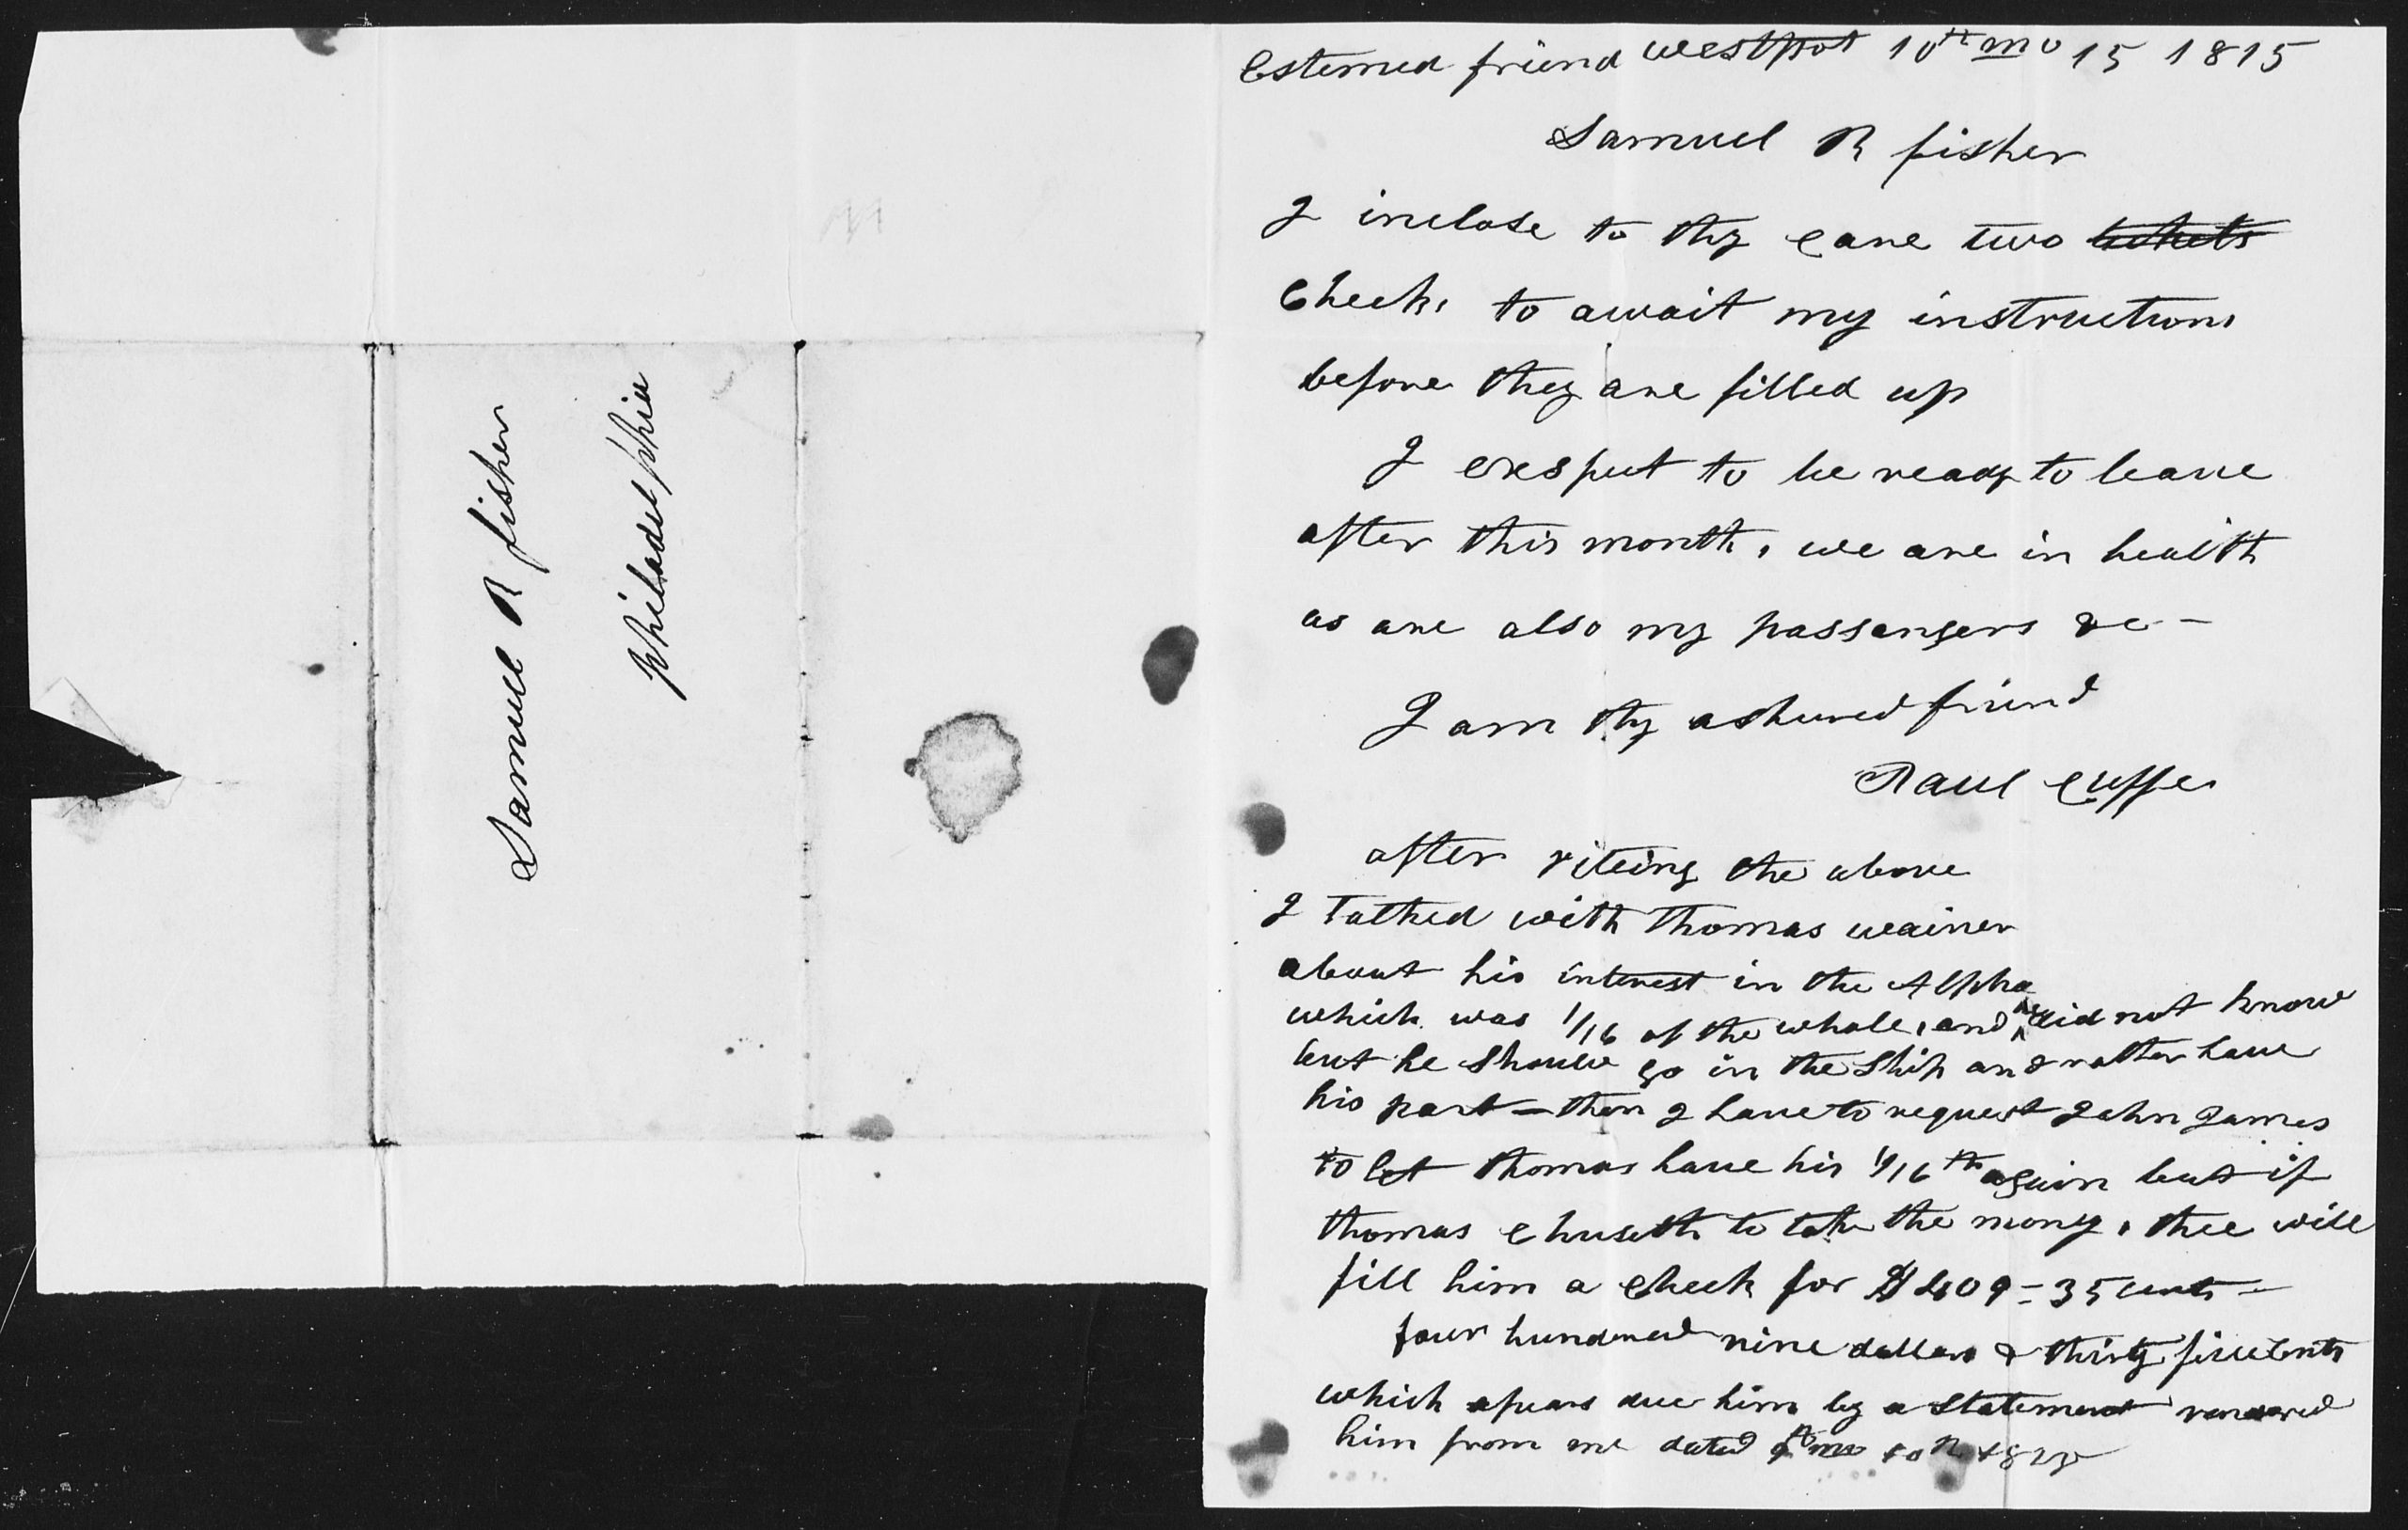 Samuel R fisher
philadelphia
Estemed friend westport 10th mo 15 1815
Samuel R fisher
I inclose to thy care two tickets
Checks to await my instructions
before they are filled up
I exspect to be ready to leave
after this month, we are in health
as are also my passangers &c -
I am thy ashured friend
Paul Cuffe
after riteing the above
I Talked with Thomas wainer
about his interest in the Alpha
which was 1/16 of the whole, and he did not know
but he should go in the Ship and rather have
his part - then I have to request John James
to let thomas have his 1/16th again but if
thomas chuseth to take the mony, thee will
fill him a check for $409=35 cents -
four hundered nine dollars & thirty five Cents
which apears due him by a Statement rendered
him from me dated mo